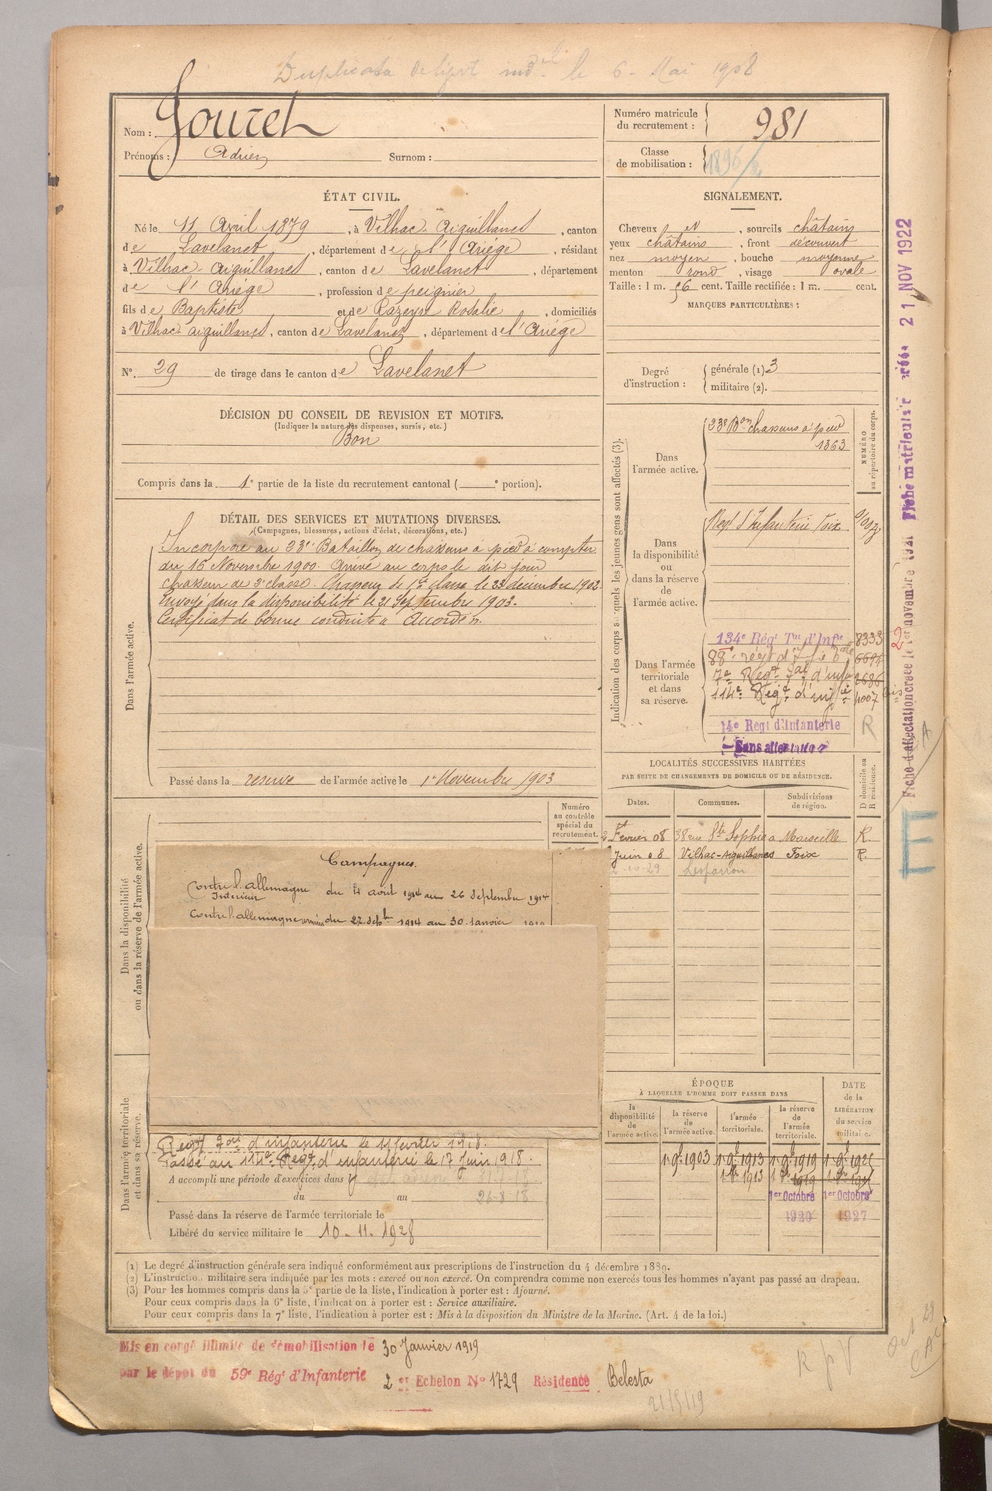 Duplicata de livret mdl le 6 Mai 1908
Nom : Jouret
Prénoms : Adrien Surnom :
Numéro matricule du recrutement : 981
Classe de mobilisation : 1896/
ÉTAT CIVIL.
Né le 11 Avril 1879, à Vilhac-Aiguillanes, canton
de Lavelanet, département de l'Ariège, résidant
à Vilhac-Aiguillanes, canton de Lavelanet, département
de l'Ariège, profession de peignier
fils de Baptiste et de Razeyre Rosalie, domiciliés
à Vilhac aiguillanes, canton de Lavelanet, département de l'Ariège
N°. 29 de tirage dans le canton de Lavelanet
SIGNALEMENT.
Cheveux et, sourcils châtains
yeux châtains, front découvert
nez moyen, bouche moyenne
menton rond, visage ovale
Taille : 1 m. 56 cent. Taille rectifiée : 1 m. cent.
MARQUES PARTICULIÈRES :
Degré d'instruction : générale (1) 3
militaire (2).
DÉCISION DU CONSEIL DE REVISION ET MOTIFS.
(Indiquer la nature des dispenses, sursis, etc.)
Bon
Compris dans la 1e partie de la liste du recrutement cantonal ( e portion).
DÉTAIL DES SERVICES ET MUTATIONS DIVERSES.
(Campagnes, blessures, actions d'éclat, décorations, etc.)
Dans l'armée active.
Incorporé au 23e Bataillon de chasseurs à pied à compter
du 16 Novembre 1900. Arrivé au corps le dit jour
chasseur de 2e classe. Chasseur de 1re classe le 23 décembre 1902.
Envoyé dans la disponibilité le 21 Septembre 1903.
Certificat de bonne conduite "Accordé".
Passé dans la réserve de l'armée active le 1er Novembre 1903
Indication des corps auxquels les jeunes gens sont affectés (3).
NUMÉRO au répertoire du corps.
Dans l'armée active.
23e Bon chasseurs à pied
1363
Dans la disponibilité ou dans la réserve de l'armée active.
Regt d'Infanterie Foix
Dans l'armée territoriale et dans sa réserve.
134e Régt Tal d'Infie 8333
88e regt d'Infie
7e Regt Tal d'infie
114e Régt d'infie 4007
14e Regt d'Infanterie R
Sans affectation
LOCALITÉS SUCCESSIVES HABITÉES
PAR SUITE DE CHANGEMENTS DE DOMICILE OU DE RÉSIDENCE.
Dates. Communes. Subdivisions de région. D domicile ou R résidence.
Février 08 38 rue Ste Sophie à Marseille R.
Juin 08 Vilhac-aiguillanes Foix R.
Numéro au contrôle spécial du recrutement.
Dans la disponibilité ou dans la réserve de l'armée active.
Campagnes.
Contre l'allemagne du 4 août 1914 au 26 Septembre 1914
Intérieur
Contre l'allemagne armées du 27 septbre 1914 au 30 Janvier 1919
Dans l'armée territoriale et dans sa réserve.
Regt Tal d'infanterie le février 1918.
Passé au 114e Régt d'infanterie le 17 Juin 1918.
A accompli une période d'exercices dans
du au
Passé dans la réserve de l'armée territoriale le
Libéré du service militaire le 10-11-1928
ÉPOQUE
À LAQUELLE L'HOMME DOIT PASSER DANS
DATE de la LIBÉRATION du service militaire.
la disponibilité de l'armée active. la réserve de l'armée active. l'armée territoriale. la réserve de l'armée territoriale.
1 9bre 1903 1 9bre 1913 1 9bre 1919 1 9bre 1925
1er Octobre 1er Octobre
1920 1927
(1) Le degré d'instruction générale sera indiqué conformément aux prescriptions de l'instruction du 4 décembre 1889.
(2) L'instruction militaire sera indiquée par les mots : exercé ou non exercé. On comprendra comme non exercés tous les hommes n'ayant pas passé au drapeau.
(3) Pour les hommes compris dans la 5e partie de la liste, l'indication à porter est : Ajourné.
Pour ceux compris dans la 6e liste, l'indication à porter est : Service auxiliaire.
Pour ceux compris dans la 7e liste, l'indication à porter est : Mis à la disposition du Ministre de la Marine. (Art. 4 de la loi.)
Mis en congé illimité de démobilisation le 30 Janvier 1919
par le dépôt du 59e Régt d'Infanterie 2 er Echelon No 1729 Résidence Belesta
R p V
Fiche matriculaire créée 21 NOV 1922